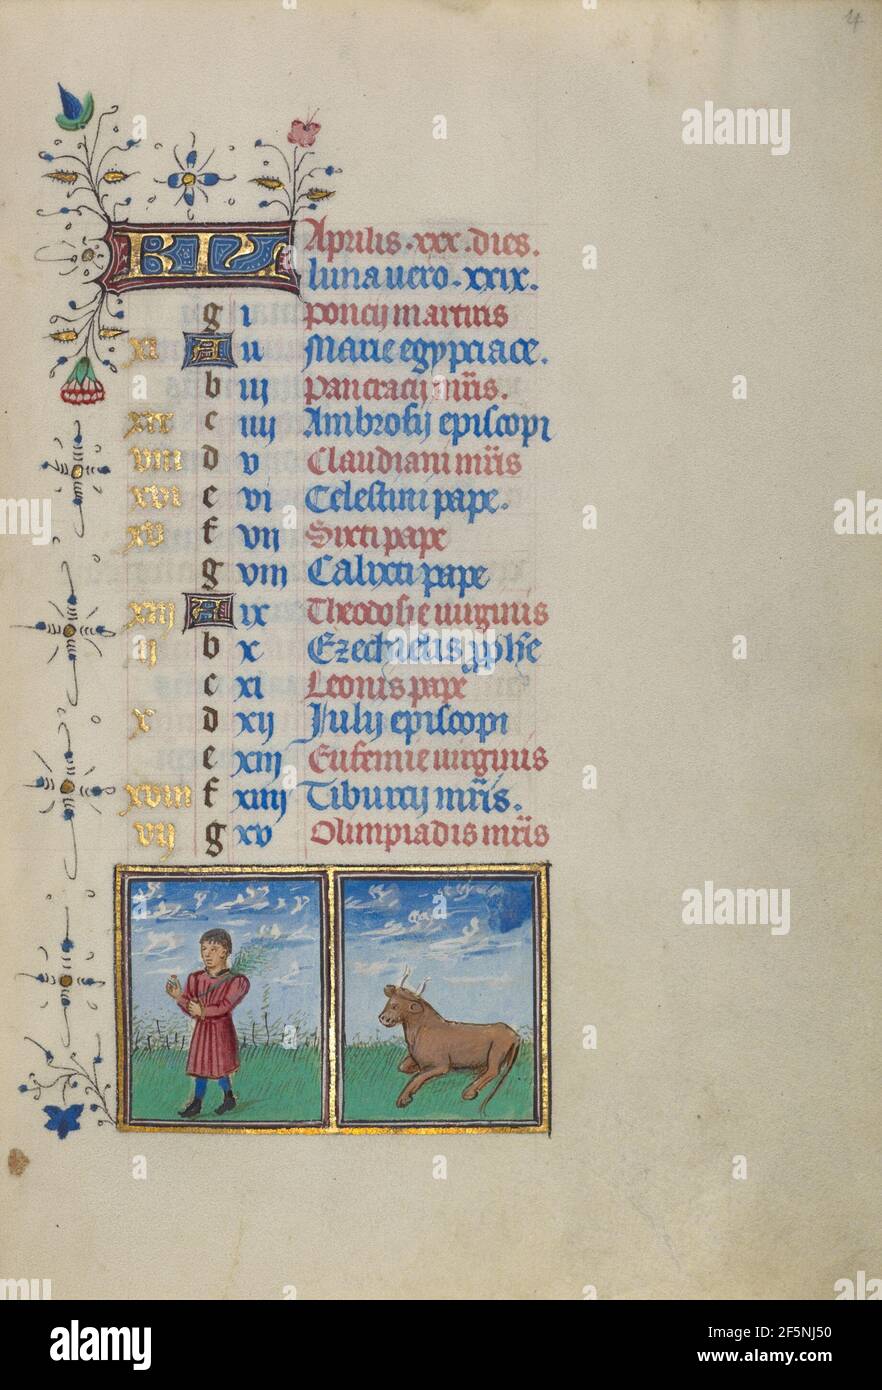 4
KL Aprilis · xxx · dies.
luna uero · xxix.
g i Poncij martiris
xi A ii Marie egypciace.
b iij Pancracij mr̄is.
xix c iiij Ambrosij episcopi
viii d v Claudiani mr̄is
xvi e vi Celestini pape.
xv f vii Sixti pape
g viii Calixti pape
xiij A ix Theodosie uirginis
ij b x Ezechielis pphe
c xi Leonis pape
x d xij Julij episcopi
e xiij Eufemie uirginis
xviii f xiiij Tiburcij mr̄is.
vij g xv Olimpiadis mr̄is
alamy
alamy
alamy
Image ID: 2F5NJ50
www.alamy.com